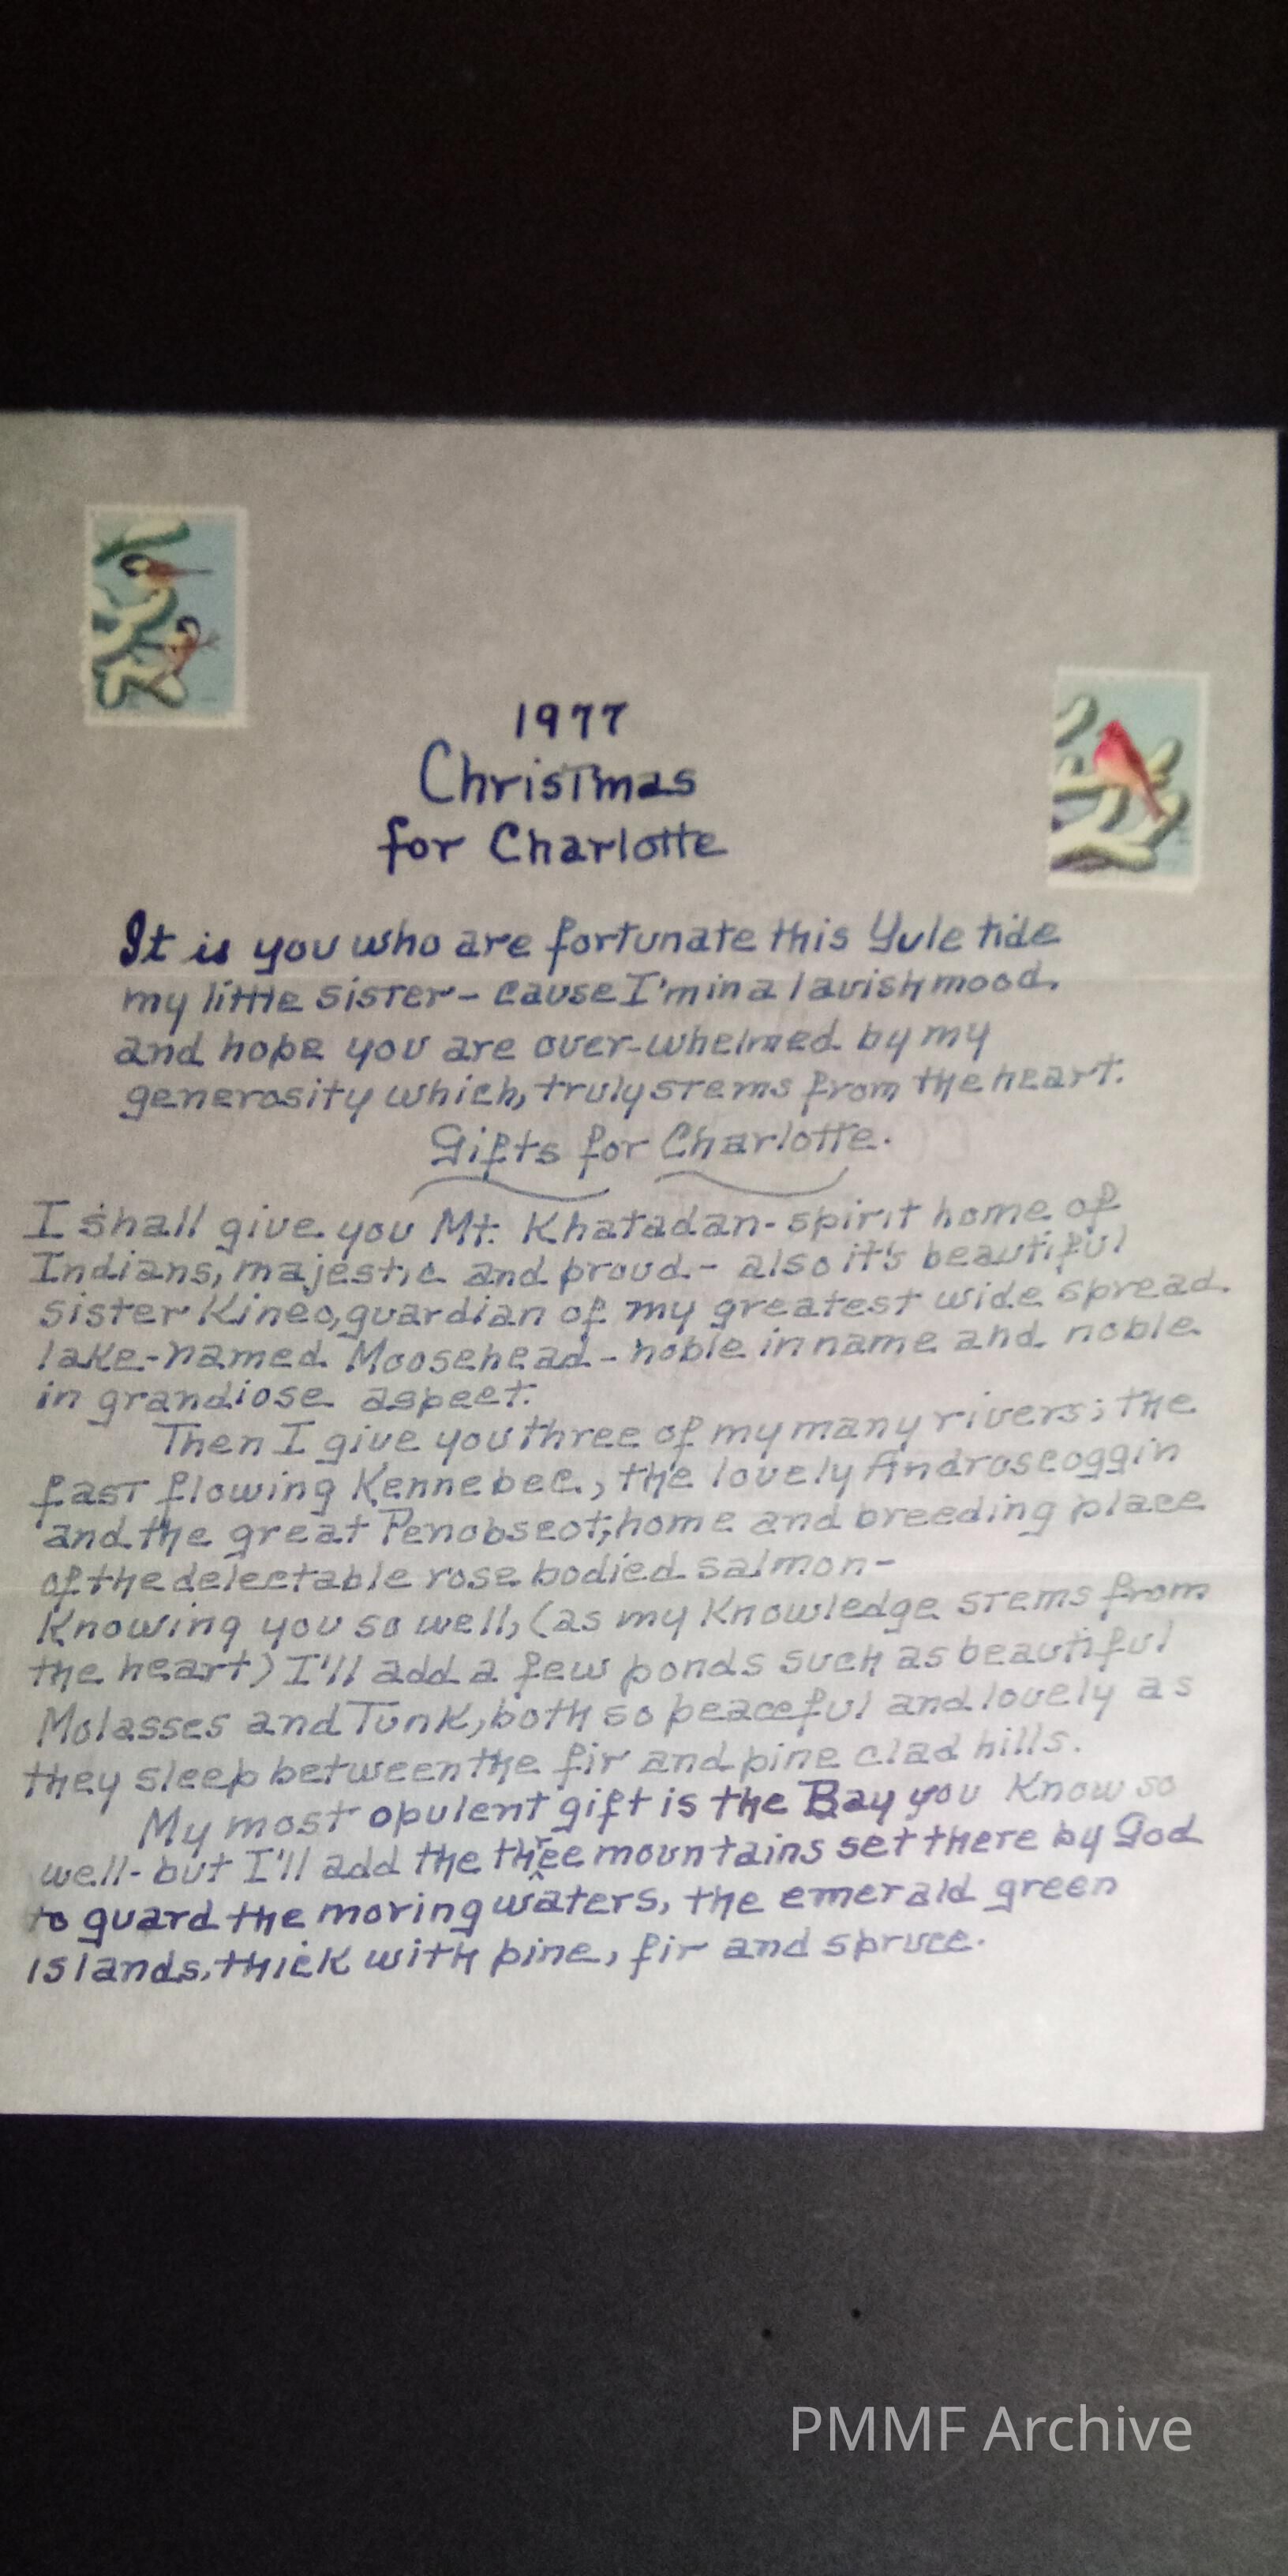 1977
Christmas
for Charlotte
It is you who are fortunate this Yule tide
my little sister - cause I'm in a lavish mood,
and hope you are over-whelmed by my
generosity which, truly stems from the heart.
Gifts for Charlotte.
I shall give you Mt. Khatadan - spirit home of
Indians, majestic and proud - also it's beautiful
sister Kineo, guardian of my greatest wide spread
lake - named Moosehead - noble in name and noble
in grandiose aspect.
Then I give you three of my many rivers; the
fast flowing Kennebec, the lovely Androscoggin
and the great Penobscot; home and breeding place
of the delectable rose bodied salmon -
Knowing you so well, (as my knowledge stems from
the heart) I'll add a few ponds such as beautiful
Molasses and Tunk, both so peaceful and lovely as
they sleep between the fir and pine clad hills.
My most opulent gift is the Bay you know so
well - but I'll add the three mountains set there by God
to guard the moving waters, the emerald green
islands, thick with pine, fir and spruce.
PMMF Archive